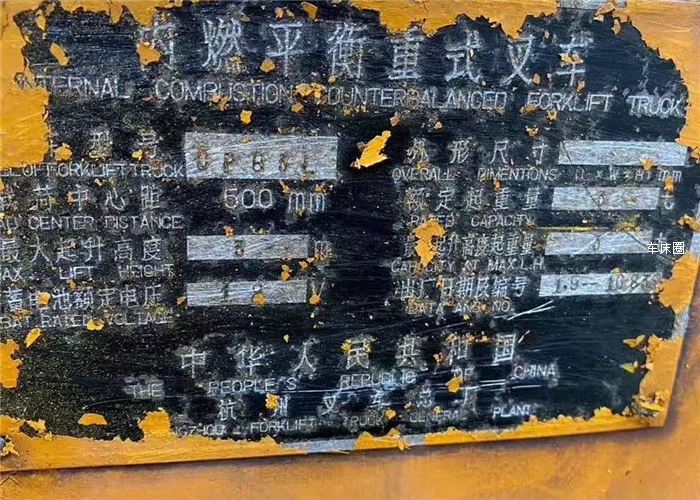 内燃平衡重式叉车
INTERNAL COMBUSTION COUNTERBALANCED FORKLIFT TRUCK
型号
外形尺寸
OVERALL DIMENTIONS L×W×H mm
中心距 500 mm
CENTER DISTANCE
额定起重量 t
RATED CAPACITY
最大起升高度 3 m
MAX. LIFT HEIGHT
升高度起重量
CAPACITY AT MAX.L.H.
蓄电池额定电压 12 V
BAT RATED VOLTAGE
出厂日期及编号
DATA AND NO.
中华人民共和国
THE PEOPLE'S REPUBLIC OF CHINA
杭州叉车总厂
FORKLIFT TRUCK GENERAL PLANT
车床圈